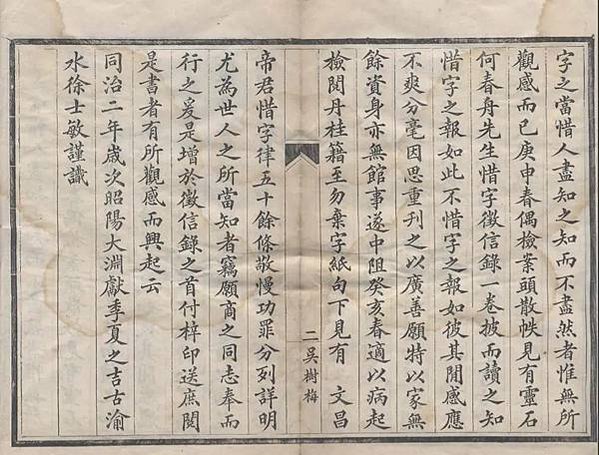 字之當惜人盡知之知而不盡然者惟無所
觀感而已庚申春偶檢案頭散帙見有靈石
何春舟先生惜字徵信錄一卷披而讀之知
惜字之報如此不惜字之報如彼其閒感應
不爽分毫因思重刊之以廣善願特以家無
餘資身亦無館事遂中阻癸亥春適以病起
檢閱丹桂籍至勿棄字紙句下見有 文昌
二 吳樹梅
帝君惜字律五十餘條敬慢功罪分列詳明
尤為世人之所當知者竊願商之同志奉而
行之爰是增於徵信錄之首付梓印送庶閱
是書者有所觀感而興起云
同治二年歲次昭陽大淵獻季夏之吉古渝
水徐士敏謹識